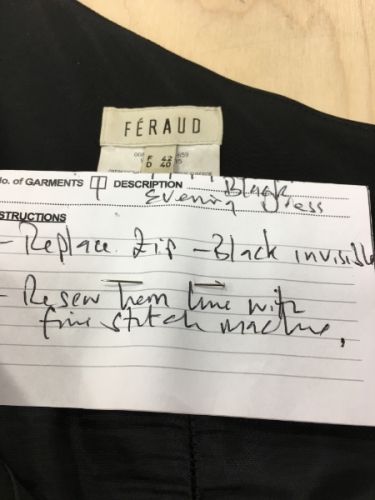 FÉRAUD
F 42
D 40
No. of GARMENTS 1 DESCRIPTION Black
Evening Dress
STRUCTIONS
- Replace Zip - Black invisible
- Resew Hem line with
fine stitch machine,